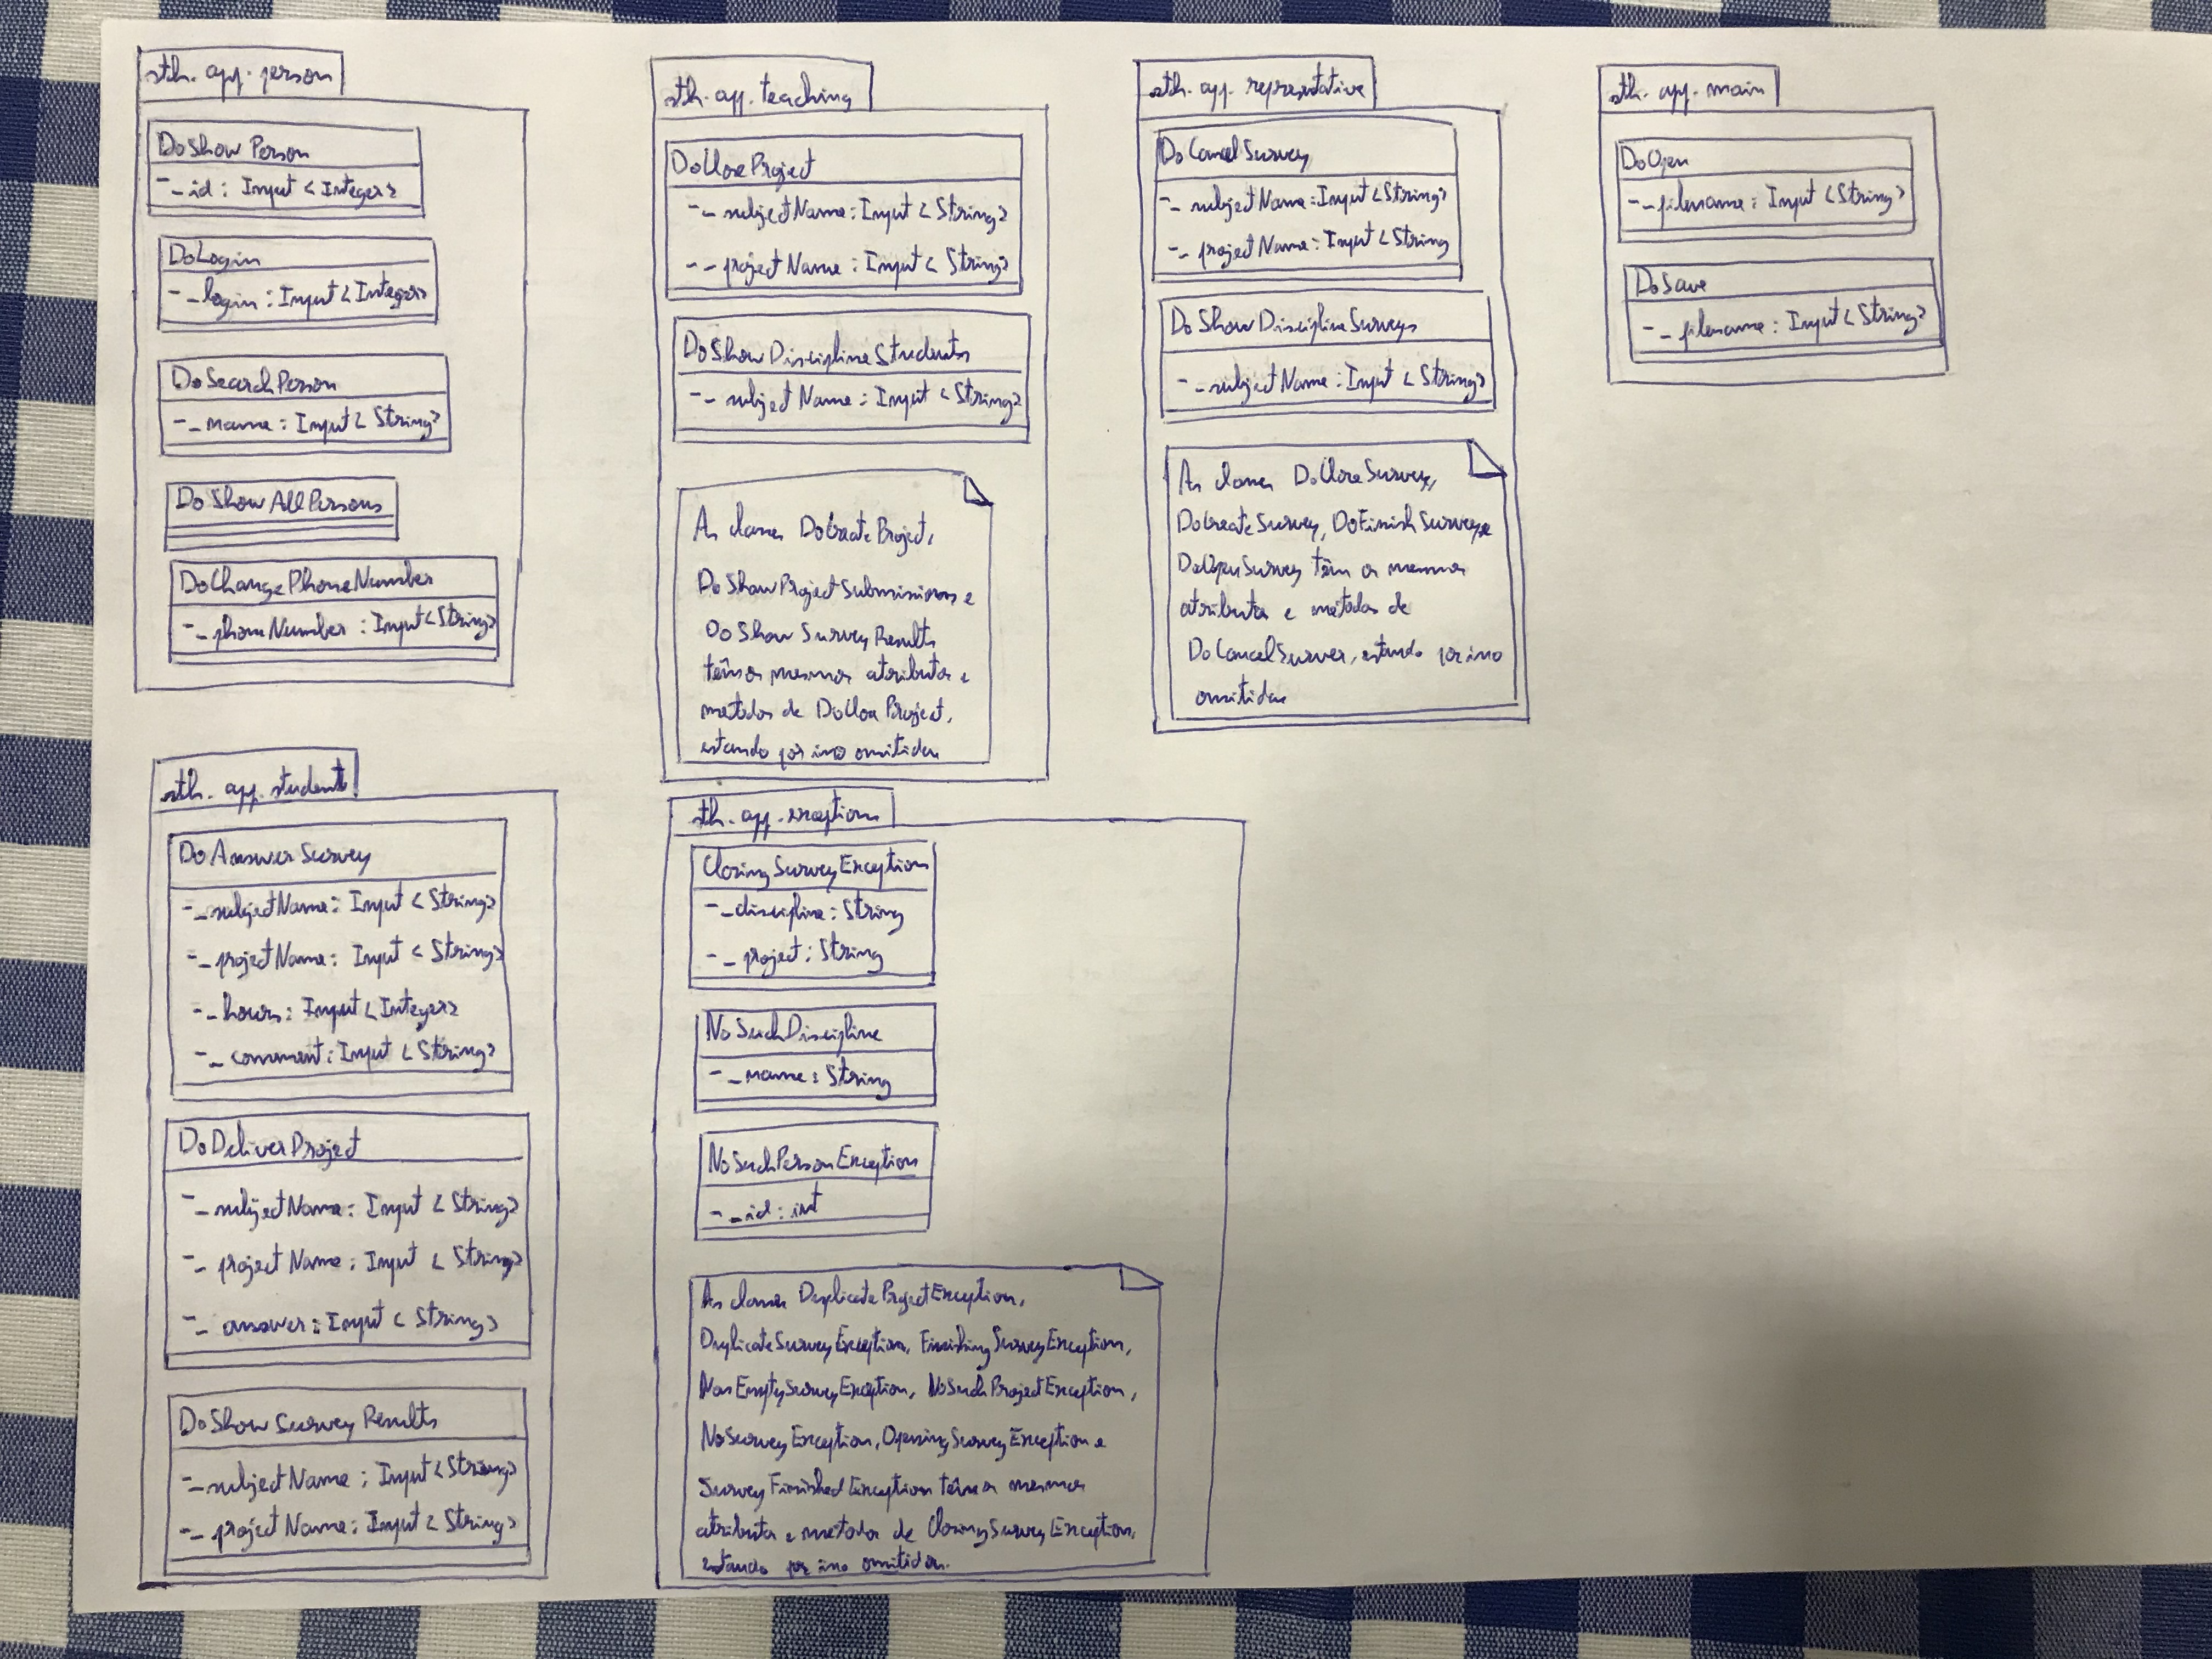 sth.app.person
DoShowPerson
- _id : Input <Integer>
DoLogin
- _login : Input <Integer>
DoSearchPerson
- _name : Input <String>
DoShowAllPersons
DoChangePhoneNumber
- _phoneNumber : Input <String>
sth.app.teaching
DoCloseProject
- _subjectName : Input <String>
- _projectName : Input <String>
DoShowDisciplineStudents
- _subjectName : Input <String>
As classes DoCreateProject,
DoShowProjectSubmissions e
DoShowSurveyResults
têm os mesmos atributos e
métodos de DoCloseProject,
estando por isso omitidas
sth.app.representative
DoCancelSurvey
- _subjectName : Input <String>
- _projectName : Input <String
DoShowDisciplineSurveys
- _subjectName : Input <String>
As classes DoCloseSurvey,
DoCreateSurvey, DoFinishSurvey e
DoOpenSurvey têm os mesmos
atributos e métodos de
DoCancelSurver, estando por isso
omitidas
sth.app.main
DoOpen
- _filename : Input <String>
DoSave
- _filename : Input <String>
sth.app.student
DoAnswerSurvey
- _subjectName : Input <String>
- _projectName : Input <String>
- _hours : Input <Integer>
- _comment : Input <String>
DoDeliverProject
- _subjectName : Input <String>
- _projectName : Input <String>
- _answer : Input <String>
DoShowSurveyResults
- _subjectName : Input <String>
- _projectName : Input <String>
sth.app.exception
ClosingSurveyException
- _discipline : String
- _project : String
NoSuchDiscipline
- _name : String
NoSuchPersonException
- _id : int
As classes DuplicateProjectException,
DuplicateSurveyException, FinishingSurveyException,
NonEmptySurveyException, NoSuchProjectException,
NoSurveyException, OpeningSurveyException e
SurveyFinishedException têm os mesmos
atributos e métodos de ClosingSurveyException,
estando por isso omitidas.